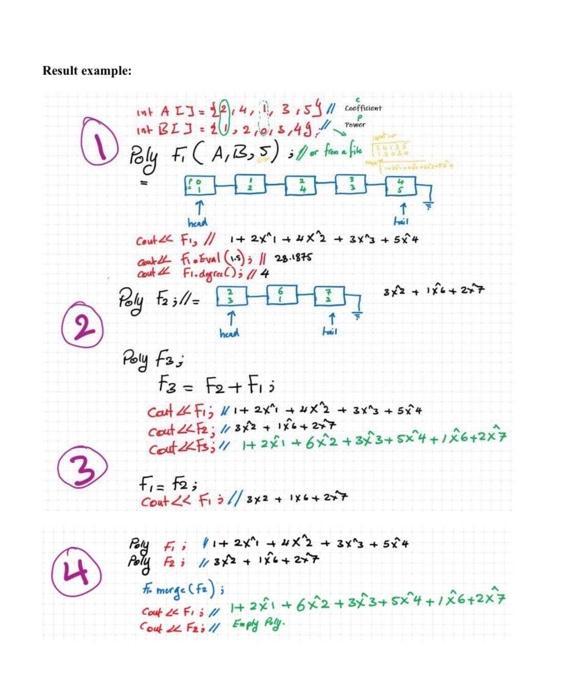 Result example:
int A[]={2,4,1,3,5} // Coefficient
int B[]={1,2,0,3,4}; // Power
1
Poly F1(A,B,5); // or from a file
=
0
1
1
2
2
4
3
3
4
5
head
tail
Cout<< F1, // 1+2x^1+4x^2+3x^3+5x^4
cout<< F1.Eval(1.5); // 28.1875
cout<< F1.degree(); // 4
Poly F2;//=
2
3
6
1
7
2
3x^2+1x^6+2x^7
head
tail
2
Poly F3;
F3=F2+F1;
Cout<<F1; // 1+2x^1+4x^2+3x^3+5x^4
Cout<<F2; // 3x^2+1x^6+2x^7
Cout<<F3; // 1+2x^1+6x^2+3x^3+5x^4+1x^6+2x^7
3
F1=F2;
Cout<< F1; // 3x2+1x6+2x^7
4
Poly F1; // 1+2x^1+4x^2+3x^3+5x^4
Poly F2; // 3x^2+1x^6+2x^7
F1.merge(F2);
Cout<<F1; // 1+2x^1+6x^2+3x^3+5x^4+1x^6+2x^7
Cout<<F2; // Empty Poly.